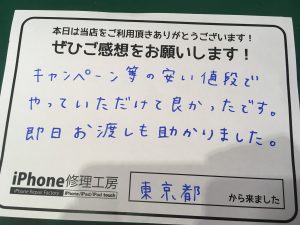 本日は当店をご利用頂きありがとうございます！
ぜひご感想をお願いします！
キャンペーン等の安い値段で
やっていただけて良かったです。
即日お渡しも助かりました。
iPhone修理工房
iPhone Repair Factory iPhone/iPad/iPod touch
東京都 から来ました